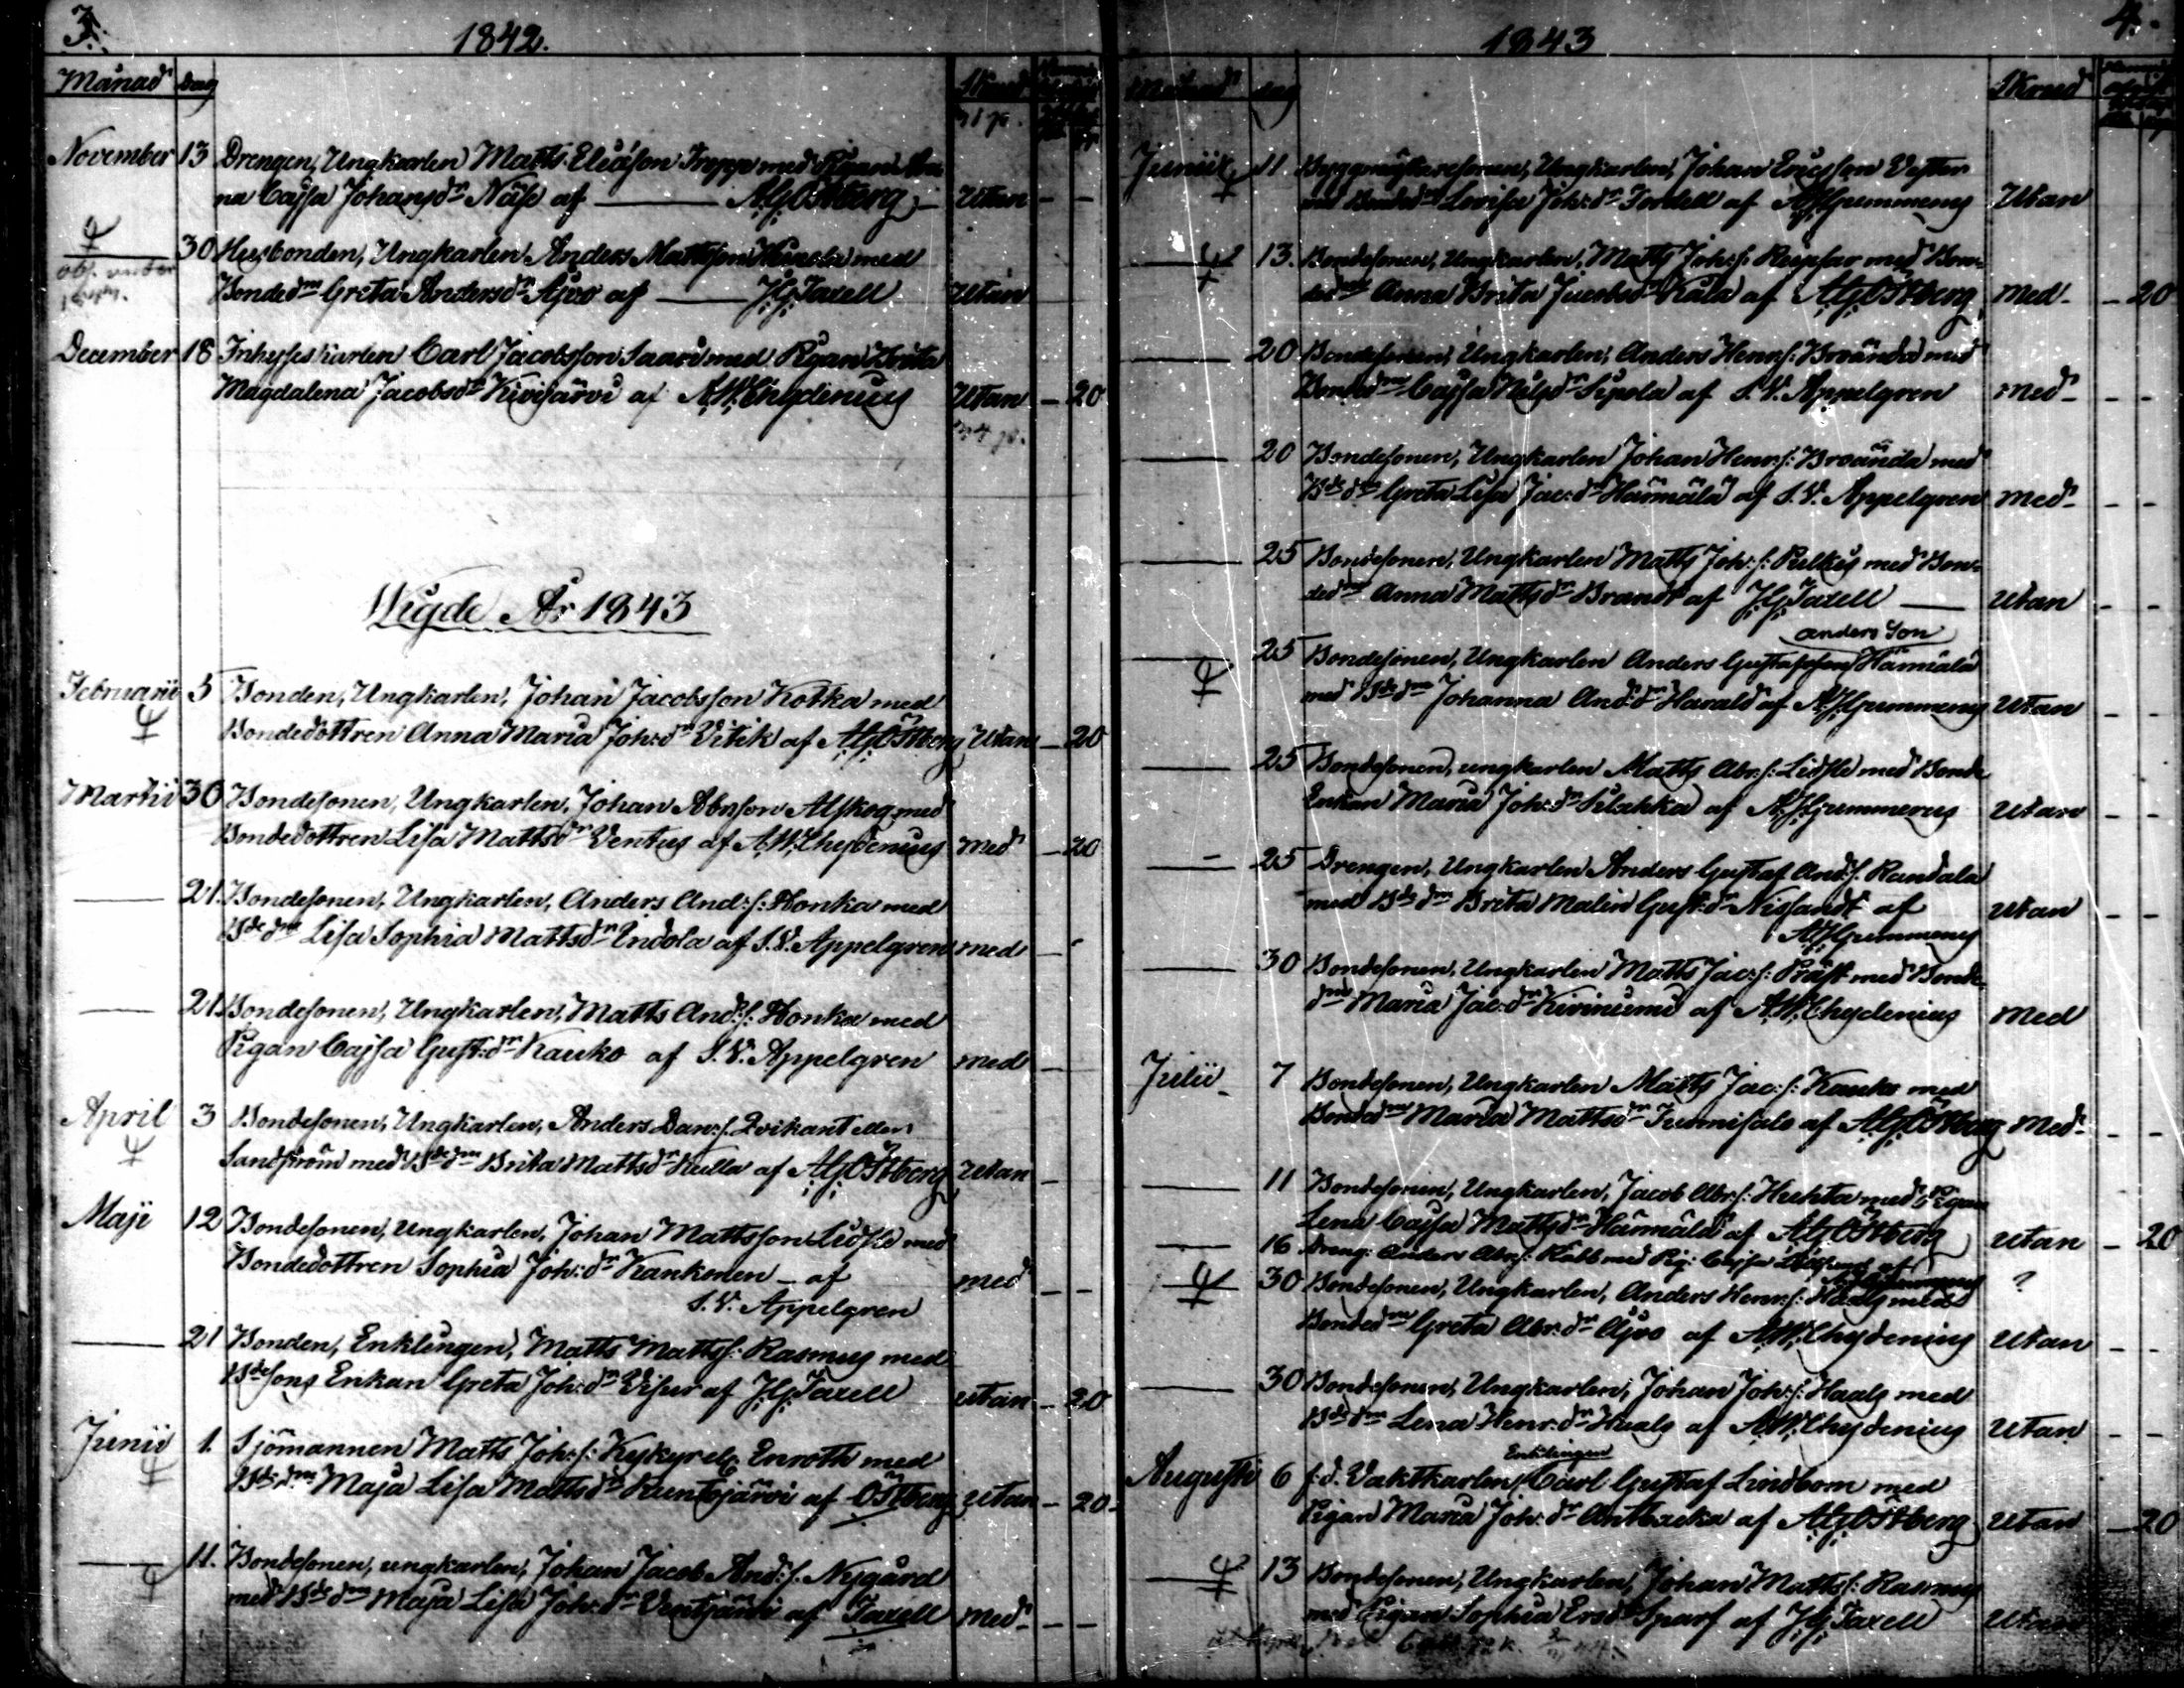 3.
1842.
Månad dag
November 13 Drengen, Ungkarlen Matts Eliasson Trepp med Pigan An-
na Cajsa Johansdr Näse af — A.G. Östberg Utan - -
30 Husbonden, Ungkarlen Anders Mattsson med
Bondedrn Greta Andersdr Ajvo af — J.G. Taxell Utan
December 18 Inhyseskarlen Carl Jacobsson Saari med Pigan Brita
Magdalena Jacobsdr Kivijärvi af A.W. Chydenius Utan - 20
Wigde År 1843
Februarii 5 Bonden, Ungkarlen, Johan Jacobsson Kotka med
Bondedottren Anna Maria Joh:dr Vitick af A.G. Östberg Utan - 20
Martii 30 Bondesonen, Ungkarlen, Johan Abrsson Alskog med
Bondedottren Lisa Mattsdr Ventus af A.W. Chydenius Med - 20
— 21. Bondesonen, Ungkarlen, Anders And:s: Honka med
Bdedrn Lisa Sophia Mattsdr Indola af S.V. Appelgren med -
— 21 Bondesonen, Ungkarlen, Matts And:s: Honka med
Pigan Cajsa Gust:dr Kauko af S.V. Appelgren med -
April 3 Bondesonen, Ungkarlen, Anders Dan:s. Qvikant eller
Sandström med Bdedrn Brita Mattsdr Kulla af A.G. Östberg Utan -
Maji 12 Bondesonen, Ungkarlen, Johan Mattsson Lidsle med
Bondedottren Sophia Joh:dr Kankonen - af
S.V. Appelgren med - -
— 21 Bonden, Enklingen, Matts Matts: Rasmus med
Bdesons Enkan Greta Joh:dr Visur af J.G. Taxell utan - 20
Junii 1. Sjömannen Matts Joh:s: Kykyreb. Enroth med
Bdedrn Maja Lisa Mattsdr Kuntsjärvi af Östberg Utan - 20-
— 11. Bondesonen, ungkarlen, Johan Jacob And:s. Nygård
med Bdedrn Maja Lisa Joh:dr Ventjärvi af Taxell Med - -
4.
1843
Månad dag
Junii 11 Byggmästaresonen, Ungkarlen, Johan Ericsson Vester
med Bondedrn Lovisa Joh:dr Fordell af A.J. Gummerus Utan
13. Bondesonen, Ungkarlen, Matts Joh:s: Ruspar med Bon-
dedrn Anna Brita Jacobsdr Kåla af A.G. Östberg Med - - 20
— 20 Bondesonen, Ungkarlen, Anders Henr:s: Broända med
Bondedrn Cajsa Nilsdr Sipola af S.V. Appelgren Med - - -
— 20 Bondesonen, Ungkarlen Johan Henr:s: Broända med
Bdedrn Greta Lisa Jac:dr Härmälä af S.V. Appelgren Med - - -
— 25 Bondesonen, Ungkarlen Matts Joh:s: Pulkis med Bon-
dedrn Anna Mattsdr Brandt af J.G. Taxell — Utan - -
anders Son
— 25 Bondesonen, Ungkarlen Anders Gustafsson Härmälä
med Bdedrn Johanna And:dr Harald af A.J. Gummerus Utan - -
— 25 Bondesonen, ungkarlen Matts Abr:s: Lidsle med Bonde
Enkan Maria Joh:dr Silahka af A.J. Gummerus Utan - -
— 25 Drengen, Ungkarlen Anders Gustaf And:s. Randala
med Bdedrn Brita Malin Gust:dr Nissandt af
A.J. Gummerus Utan - -
— 30 Bondesonen, Ungkarlen Matts Jac:s: Präst med Bonde
drn Maria Jac:dr Kiviniemi af A.W. Chydenius Med
Julii - 7 Bondesonen, Ungkarlen Matts Jac:s: Kauko med
Bondedrn Maria Mattsdr Tunnisalo af A.G. Östberg Med - - -
— 11 Bondesonen, Ungkarlen, Jacob Abr:s: Huhta med Pigan
Lena Cajsa Mattsdr Härmälä af A.G. Östberg Utan - 20
— 16 Dreng: Anders Abr:s: Rabb med Pig: Cajsa af
A.J. Gummerus ?
30 Bondesonen, Ungkarlen, Anders Henr:s: Haals med
Bondedrn Greta Abr:dr Ajvo af A.W. Chydenius Utan - -
— 30 Bondesonen, Ungkarlen, Johan Joh:s: Haals med
Bdedrn Lena Henr:dr Haals af A.W. Chydenius Utan - -
Enklingen
Augusti 6 f.d. Vaktkarlen Carl Gustaf Lindbom med
Pigan Maria Joh:dr Anttbacka af A.G. Östberg Utan - 20
13 Bondesonen, Ungkarlen, Johan Matts: Rasmus
med Pigan Sophia Ersdr Sparf af J.G. Taxell Utan